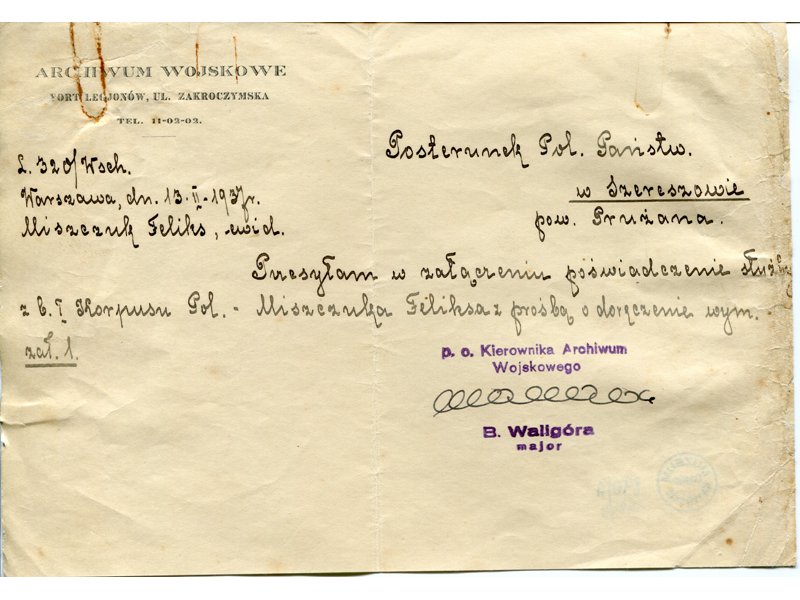 ARCHIWUM WOJSKOWE
FORT LEGJONÓW, UL. ZAKROCZYMSKA
TEL. 11-02-02.
L. 320/Wsch.
Warszawa, dn. 13-II-1937r.
Miszczuk Feliks, ewid.
Posterunek Pol. Państw.
w Szereszowie
pow. Prużana.
Przesyłam w załączeniu poświadczenie służby
z b. I Korpusu Pol. - Miszczuka Feliksa z prośbą o doręczenie wym. -
zał. 1.
p. o. Kierownika Archiwum
Wojskowego
B. Waligóra
major